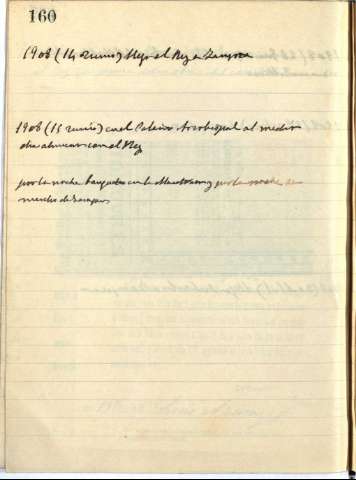 160
1908 (14 Junio) llega el Rey a Zaragoza
1908 (15 Junio) en el Palacio Arzobispal al medio
dia almuerzo con el Rey
por la noche banquete en la y por la noche se
marcha de Zaragoza